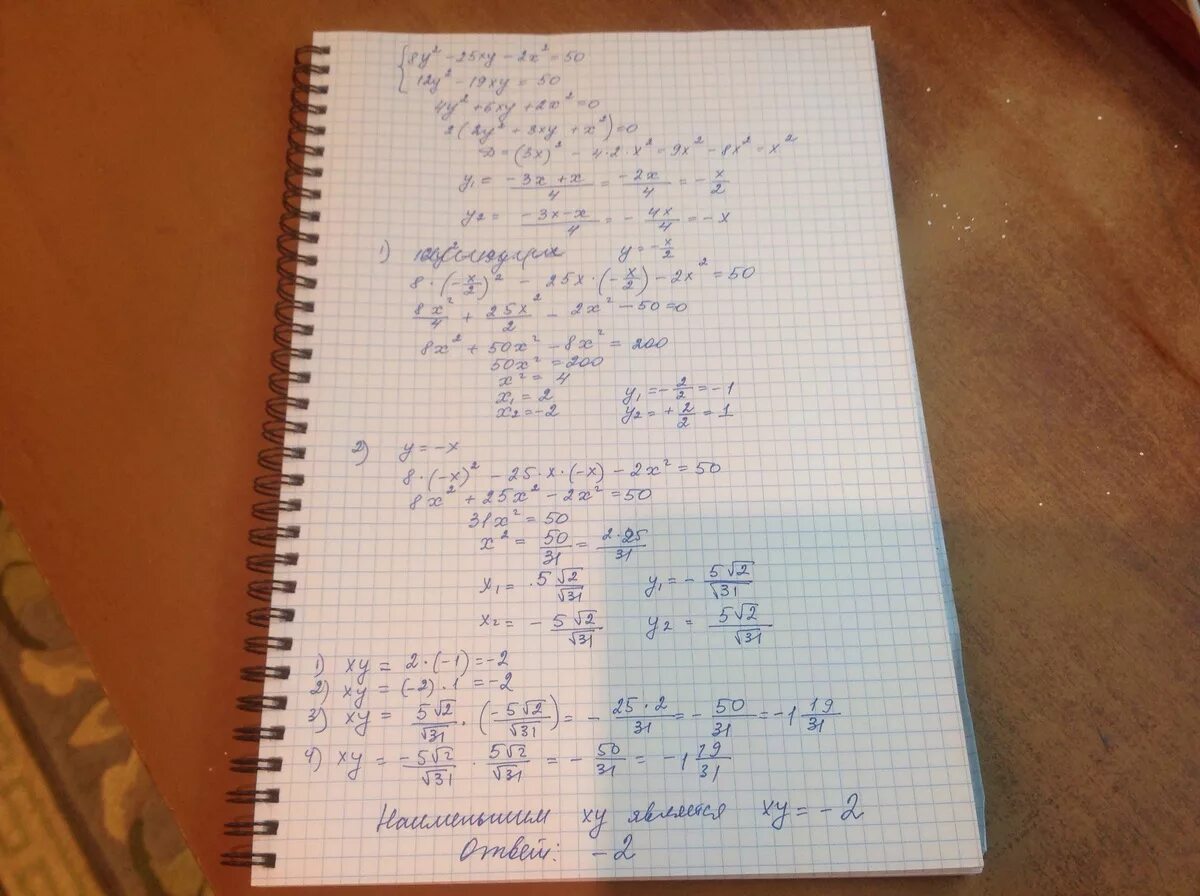 { 8y² - 25xy - 2x² = 50
12y² - 19xy = 50
4y² + 6xy + 2x² = 0
2(2y² + 3xy + x²) = 0
D = (3x)² - 4·2·x² = 9x² - 8x² = x²
y₁ = (-3x + x)/4 = -2x/4 = -x/2
y₂ = (-3x - x)/4 = -4x/4 = -x
1) y = -x/2
8·(-x/2)² - 25x·(-x/2) - 2x² = 50
8x²/4 + 25x²/2 - 2x² - 50 = 0
8x² + 50x² - 8x² = 200
50x² = 200
x² = 4
x₁ = 2 y₁ = -2/2 = -1
x₂ = -2 y₂ = +2/2 = 1
2) y = -x
8·(-x)² - 25·x·(-x) - 2x² = 50
8x² + 25x² - 2x² = 50
31x² = 50
x² = 50/31 = 2·25/31
x₁ = 5√2/√31 y₁ = -5√2/√31
x₂ = -5√2/√31 y₂ = 5√2/√31
1) xy = 2·(-1) = -2
2) xy = (-2)·1 = -2
3) xy = 5√2/√31 · (-5√2/√31) = -25·2/31 = -50/31 = -1 19/31
4) xy = -5√2/√31 · 5√2/√31 = -50/31 = -1 19/31
Наименьшим xy является xy = -2
Ответ: -2